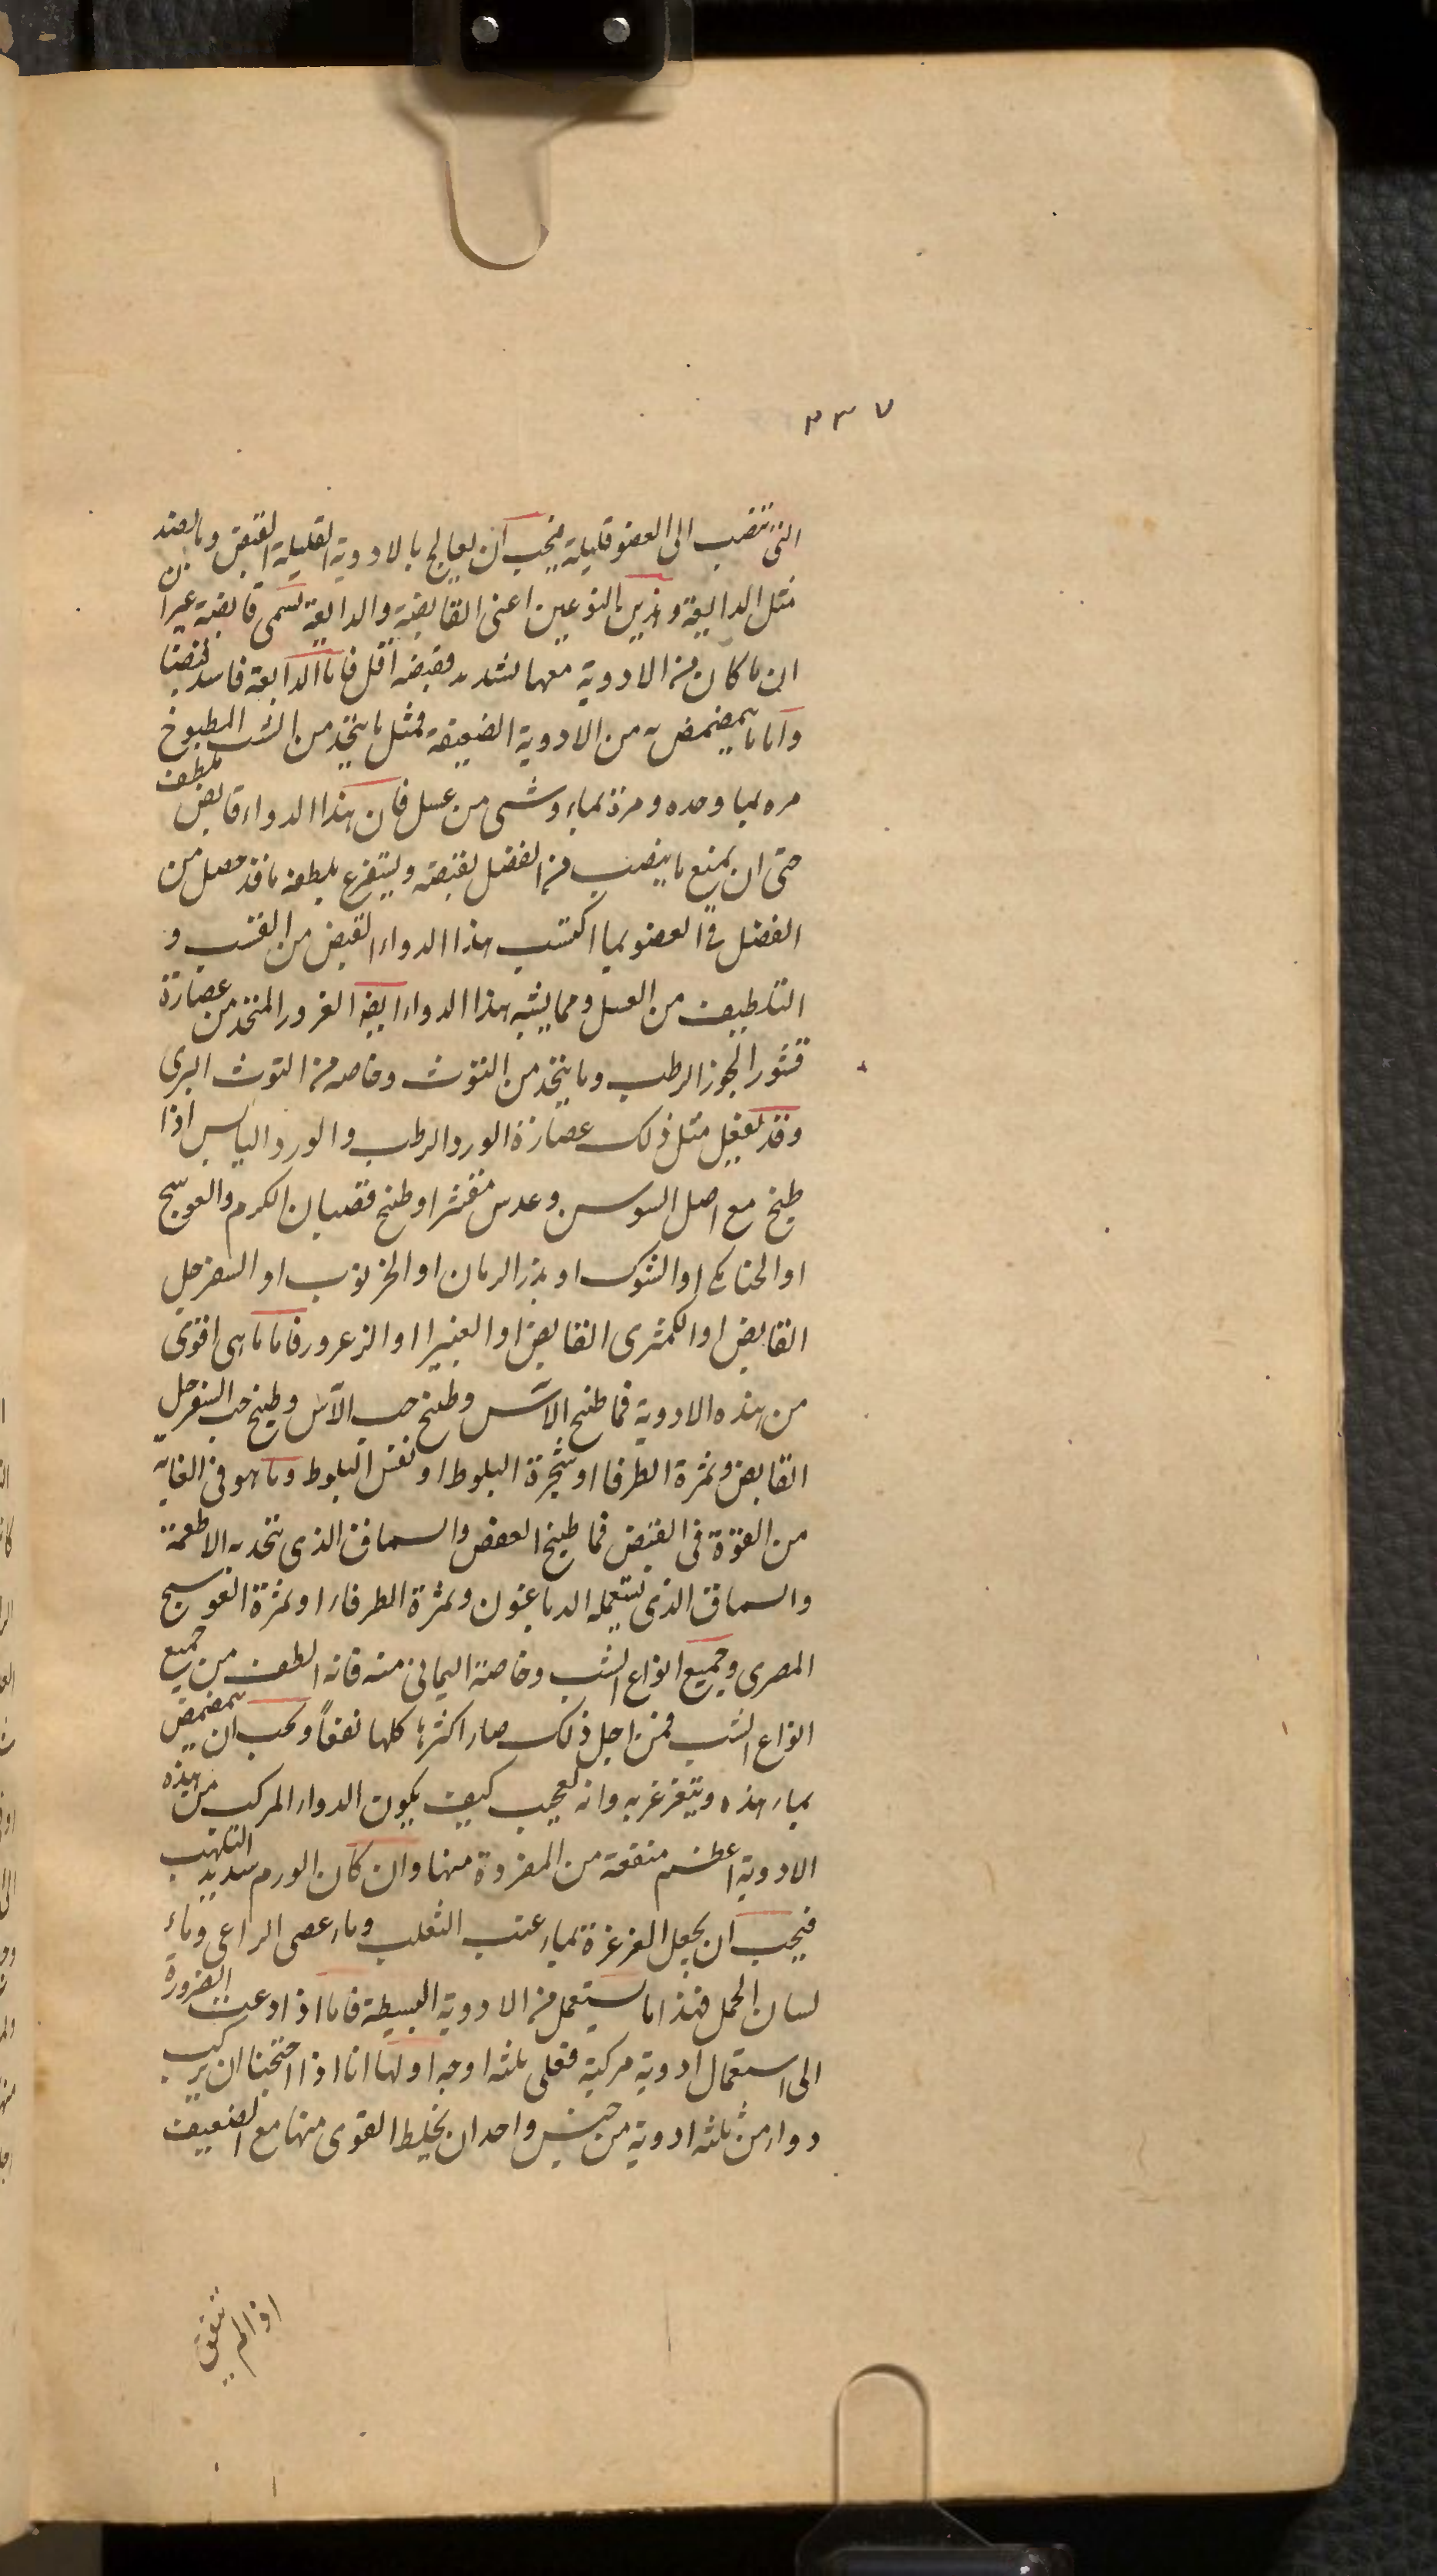 ٣٣٧
التى تنصب الى العضو قليلة فيجب ان يعالج بالادوية القليلة القبض وبالضد
مثل الدابغة وهذين النوعين اعنى القابضة والدابغة تسمى قابضة غير
ان ما كان من الادوية معها لشدد فقبضه اقل فاما الدابغة فاشد قبضا
واما ما يتمضمض به من الادوية الضعيفة فمثل ما يتخذ من الشب المطبوخ
مره بما وحده ومرة بماء وشى من عسل فان هذا الدواء قابض ملطف
حتى ان يمنع ما ينصب من الفضل لقبضه ويستفرغ بلطفه ما قد حصل من
الفضل فى العضو بما اكتسب هذا الدواء القبض من القشب و
التلطيف من العسل ومما يشبه هذا الدواء ايضا الغرور المتخذ من عصارة
قشور الجوز الرطب وما يتخذ من التوث وخاصه من التوث البرى
وقد يفعل مثل ذلك عصارة الورد الرطب والورد اليابس اذا
طبخ مع اصل السوسن وعدس مقشر او طبخ قضبان الكرم والعوسج
او الشوك او بزر الرمان او الخرنوب او السفرجل
القابض او الكمثرى القابض او الغبيرا او الزعرور فاما ما هى اقوى
من هذه الادوية فما طبخ الاس وطبخ حب الآس وطبخ حب السفرجل
القابض وثمرة الطرفا او شجرة البلوط او نفس البلوط وما هو فى الغاية
من القوة فى القبض فما طبخ العفص والسماق الذى تتخذ به الاطعمة
والسماق الذى تستعمله الدباغون وثمرة الطرفاء او ثمرة العوسج
المصرى وجميع انواع الشب وخاصة اليمانى منه فانه الطف من جميع
انواع الشب فمن اجل ذلك صار اكثرها كلها نفعاً ويجب ان يتمضمض
بماء هذه ويتغرغر به وانه لعجيب كيف يكون الدواء المركب من هذه
الادوية اعظم منفعة من المفردة منها وان كان الورم شديد التلهب
فيجب ان يجعل الغرغرة بماء عنب الثعلب وماء عصى الراعى وماء
لسان الحمل فهذا ما يستعمل من الادوية البسيطة فاما اذا دعت الضرورة
الى استعمال ادوية مركبة فعلى ثلثه اوجه اولها انا اذا احتجنا ان يركب
دواء من ثلثه ادوية من جنس واحد ان يخلط القوى منها مع الضعيف
اذا لم يتفق